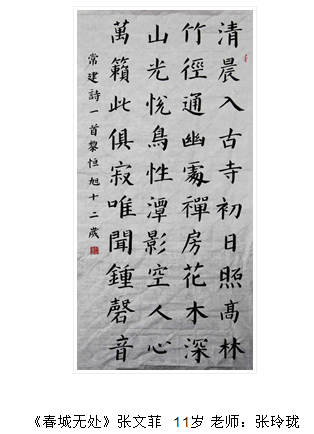 清晨入古寺初日照高林
竹徑通幽處禪房花木深
山光悅鳥性潭影空人心
萬籟此俱寂唯聞鍾磬音
常建詩一首黎恒旭十二歲
《春城无处》张文菲 11岁 老师：张玲珑